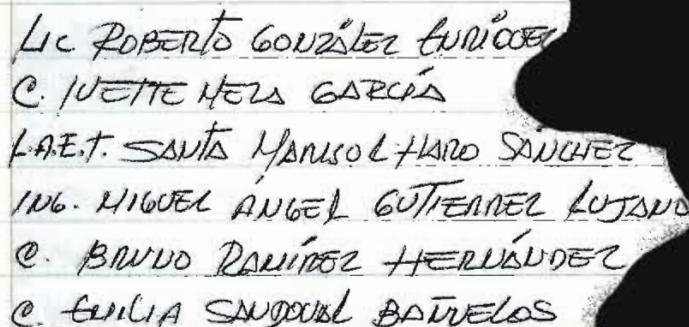 Lic ROBERTO GONZÁLEZ ENRÍQUEZ
C. IVETTE MEZA GARCÍA
L.A.E.T. SANTA MARISOL HARO SÁNCHEZ
ING. MIGUEL ÁNGEL GUTIERREZ LUJANO
C. BRUNO RAMÍREZ HERNÁNDEZ
C. EMILIA SANDOVAL BAÑUELOS